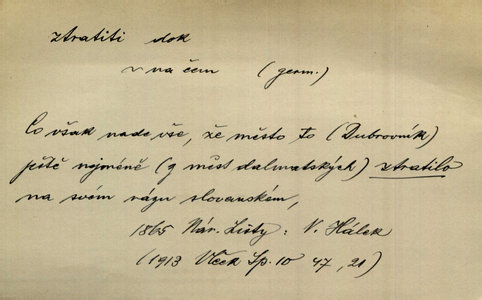 ztratiti dok
~ na čem (germ.)
Co však nade vše, že město to (Dubrovník)
ještě nejméně (z měst dalmatských) ztratilo
na svém rázu slovanském,
1865 Nár. Listy: V. Hálek
(1913 Vlček Sp. 10 47, 21)